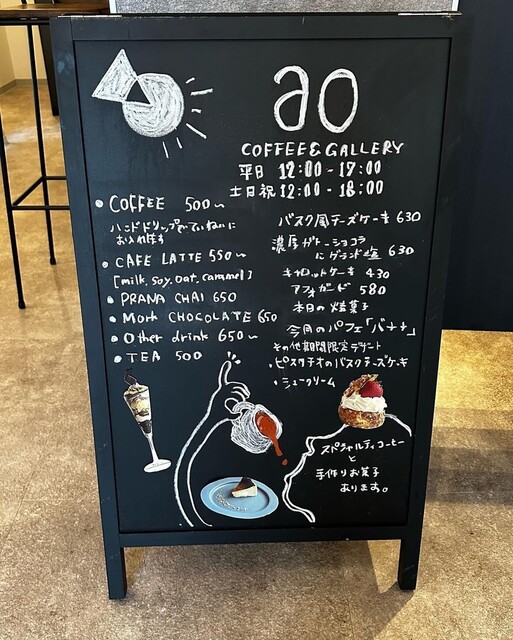 ao
COFFEE&GALLERY
平日 12:00-17:00
土日祝 12:00-18:00
• COFFEE 500〜
ハンドドリップでていねいに
お入れします
• CAFE LATTE 550〜
[milk, soy, oat, caramel]
• PRANA CHAI 650
• Mork CHOCOLATE 650
• Other drink 650〜
• TEA 500
バスク風チーズケーキ 630
濃厚ガトーショコラ
にグランド塩 630
キャロットケーキ 430
アフォガード 580
本日の焼菓子
今月のパフェ「バナナ」
その他期間限定デザート
・ピスタチオのバスクチーズケーキ
・シュークリーム
スペシャルティコーヒー
と
手作りお菓子
あります。